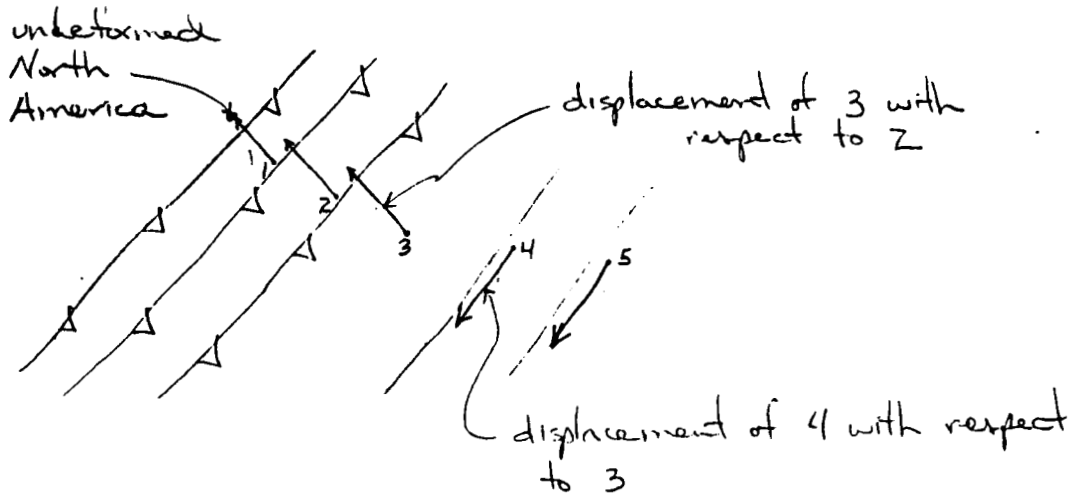 undeformed
North
America
displacement of 3 with
respect to 2
1
2
3
4
5
displacement of 4 with respect
to 3